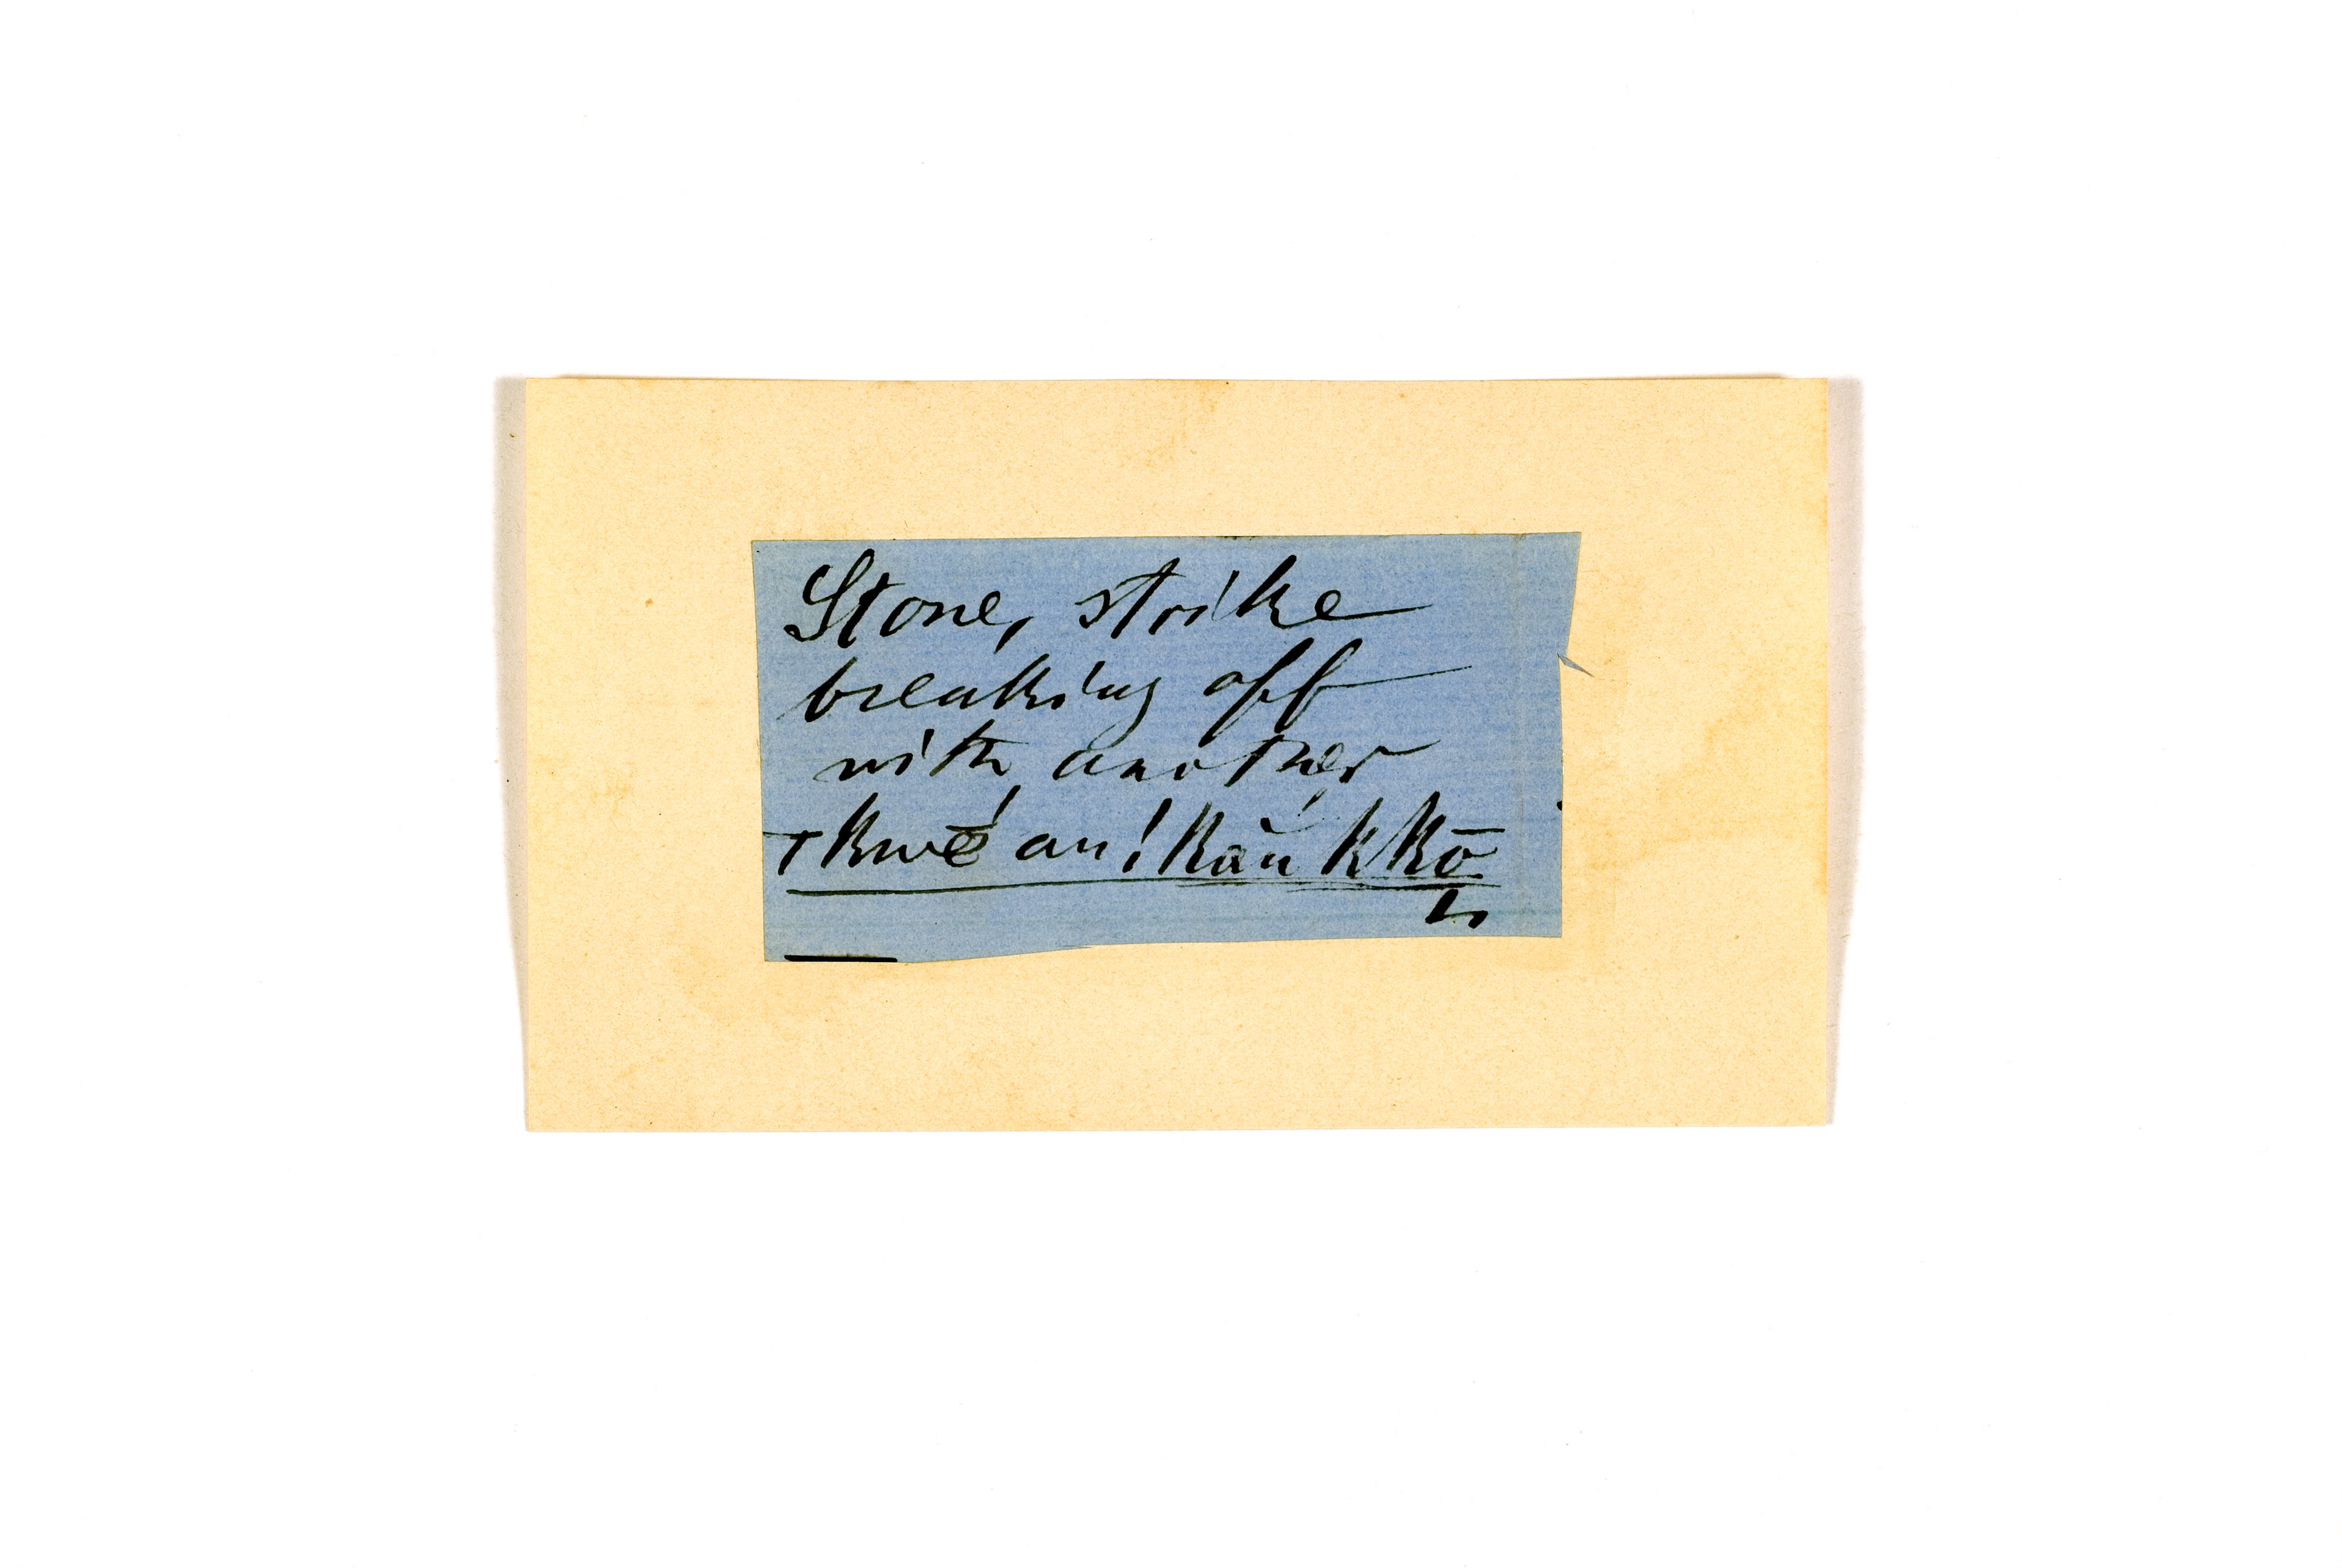 Stone, strike
breaking off
with another
+ kwḗ an ! kaŭ k kō
L.